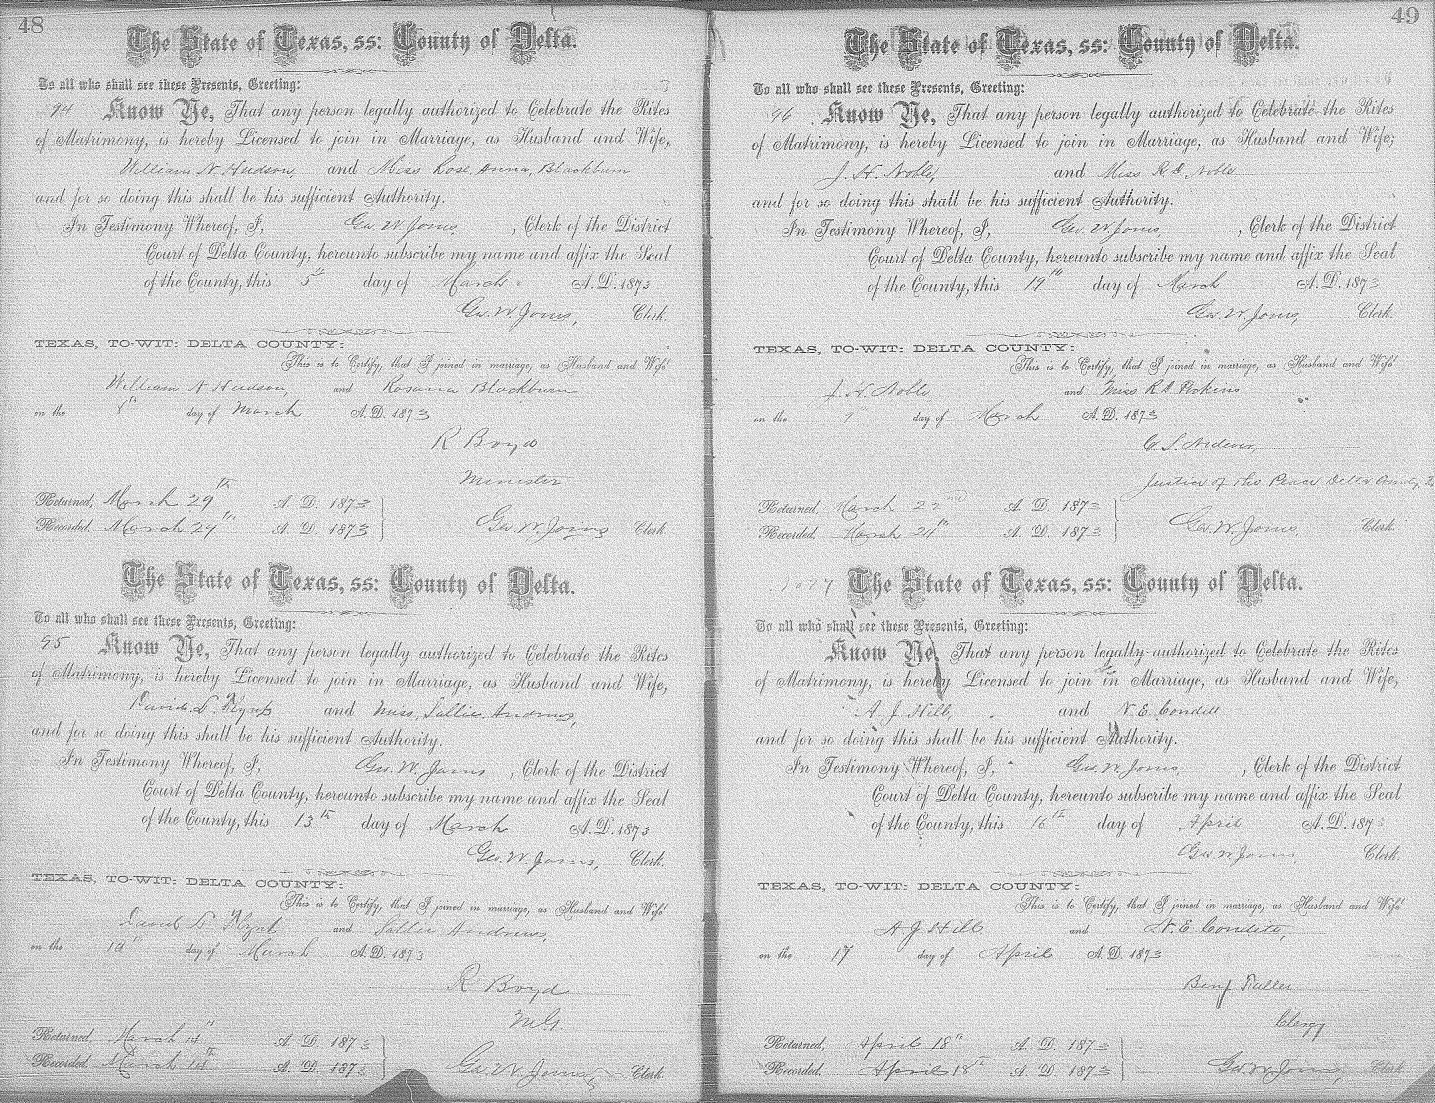 48
The State of Texas, ss: County of Delta.
To all who shall see these Presents, Greeting:
94 Know Ye, That any person legally authorized to Celebrate the Rites
of Matrimony, is hereby Licensed to join in Marriage, as Husband and Wife,
William N. Hudson, and Miss Rose Anna Blackburn
and for so doing this shall be his sufficient Authority.
In Testimony Whereof, I, Geo. W. Jones, Clerk of the District
Court of Delta County, hereunto subscribe my name and affix the Seal
of the County, this 5th day of March A. D. 1873
Geo. W. Jones, Clerk.
TEXAS, TO-WIT: DELTA COUNTY:
This is to Certify, that I joined in marriage, as Husband and Wife
William N Hudson, and Rosana Blackburn
on the day of March A. D. 1873
R Boyd
Minister
Returned, March 29th A. D. 1873
Recorded, March 29th A. D. 1873 Geo W. Jones Clerk.
The State of Texas, ss: County of Delta.
To all who shall see these Presents, Greeting:
95 Know Ye, That any person legally authorized to Celebrate the Rites
of Matrimony, is hereby Licensed to join in Marriage, as Husband and Wife,
David and Miss Sallie Andrews,
and for so doing this shall be his sufficient Authority.
In Testimony Whereof, I, Geo. W. Jones, Clerk of the District
Court of Delta County, hereunto subscribe my name and affix the Seal
of the County, this 13th day of March A. D. 1873
Geo. W. Jones, Clerk.
TEXAS, TO-WIT: DELTA COUNTY:
This is to Certify, that I joined in marriage, as Husband and Wife
David and Sallie Andrews,
on the day of March A. D. 1873
R Boyd
M G.
Returned, March A. D. 1873
Recorded, March A. D. 1873 Geo. W. Jones Clerk.
49
The State of Texas, ss: County of Delta.
To all who shall see these Presents, Greeting:
96 Know Ye, That any person legally authorized to Celebrate the Rites
of Matrimony, is hereby Licensed to join in Marriage, as Husband and Wife;
J. H. Noble, and Miss R A Noble
and for so doing this shall be his sufficient Authority.
In Testimony Whereof, I, Geo. W. Jones, Clerk of the District
Court of Delta County, hereunto subscribe my name and affix the Seal
of the County, this 19th day of March A. D. 1873
Geo. W. Jones, Clerk.
TEXAS, TO-WIT: DELTA COUNTY:
This is to Certify, that I joined in marriage, as Husband and Wife
J. H. Noble and Miss R A
on the day of March A. D. 1873
C S.
Justice of the Peace Delta County
Returned, March 22nd A. D. 1873
Recorded, March 24th A. D. 1873 Geo. W. Jones, Clerk.
The State of Texas, ss: County of Delta.
To all who shall see these Presents, Greeting:
Know Ye, That any person legally authorized to Celebrate the Rites
of Matrimony, is hereby Licensed to join in Marriage, as Husband and Wife,
A. J Hill, and N. E. Conditt
and for so doing this shall be his sufficient Authority.
In Testimony Whereof, I, Geo. W. Jones, Clerk of the District
Court of Delta County, hereunto subscribe my name and affix the Seal
of the County, this 16th day of April A. D. 187
Geo W Jones, Clerk.
TEXAS, TO-WIT: DELTA COUNTY:
This is to Certify, that I joined in marriage, as Husband and Wife
A J Hill and N. E. Conditt,
on the 17 day of April A. D. 1873
Benj Fuller
Clergy
Returned, April 18th A. D. 1873
Recorded, April 18th A. D. 1873 Geo. W. Jones, Clerk